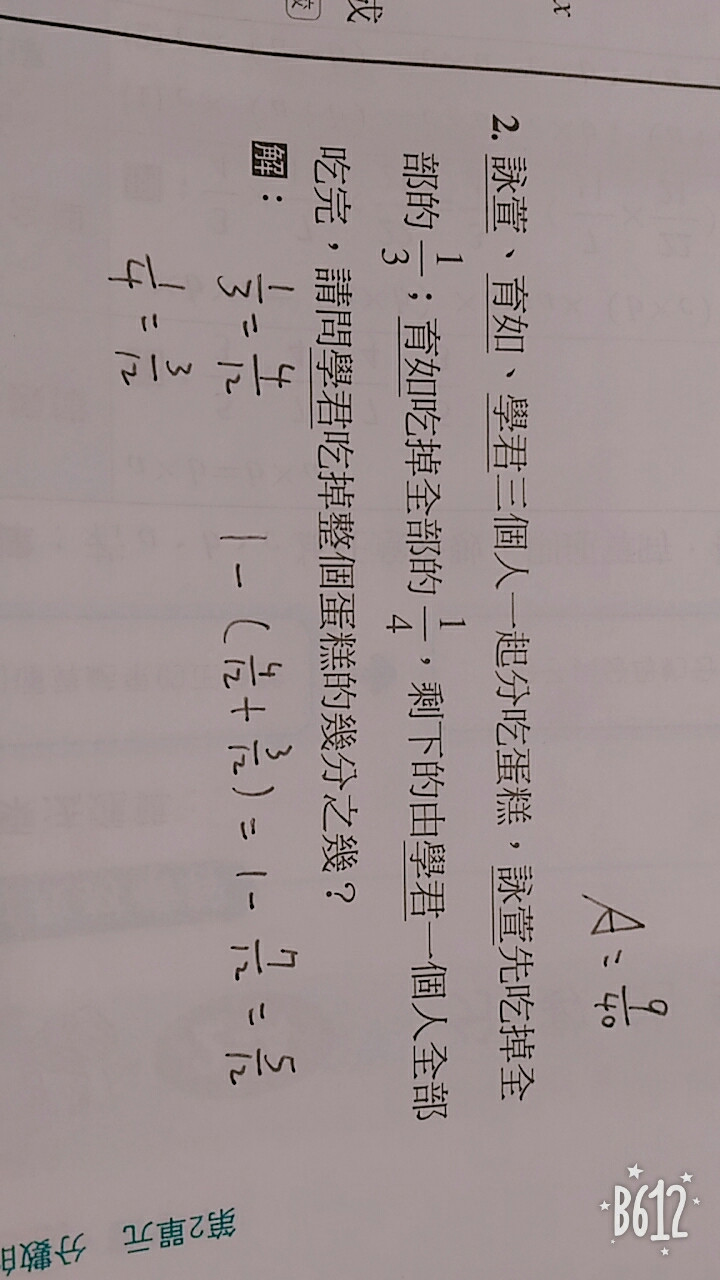 x
成
A = 9/40
2. 詠萱、育如、學君三個人一起分吃蛋糕，詠萱先吃掉全
部的 1/3；育如吃掉全部的 1/4，剩下的由學君一個人全部
吃完，請問學君吃掉整個蛋糕的幾分之幾？
解：
1/3 = 4/12
1/4 = 3/12
1 - (4/12 + 3/12) = 1 - 7/12 = 5/12
第2單元 分數的
B612